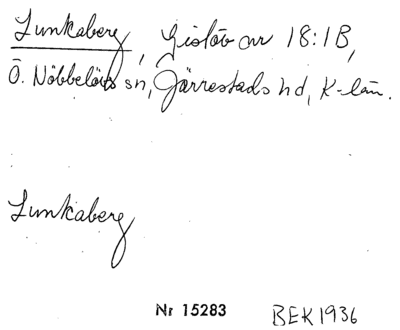 Lunkaberg, Gislöv nr 18:1B,
Ö. Nöbbelövs sn, Järrestads hd, K-län.
Lunkaberg
Nr 15283 BEK1936